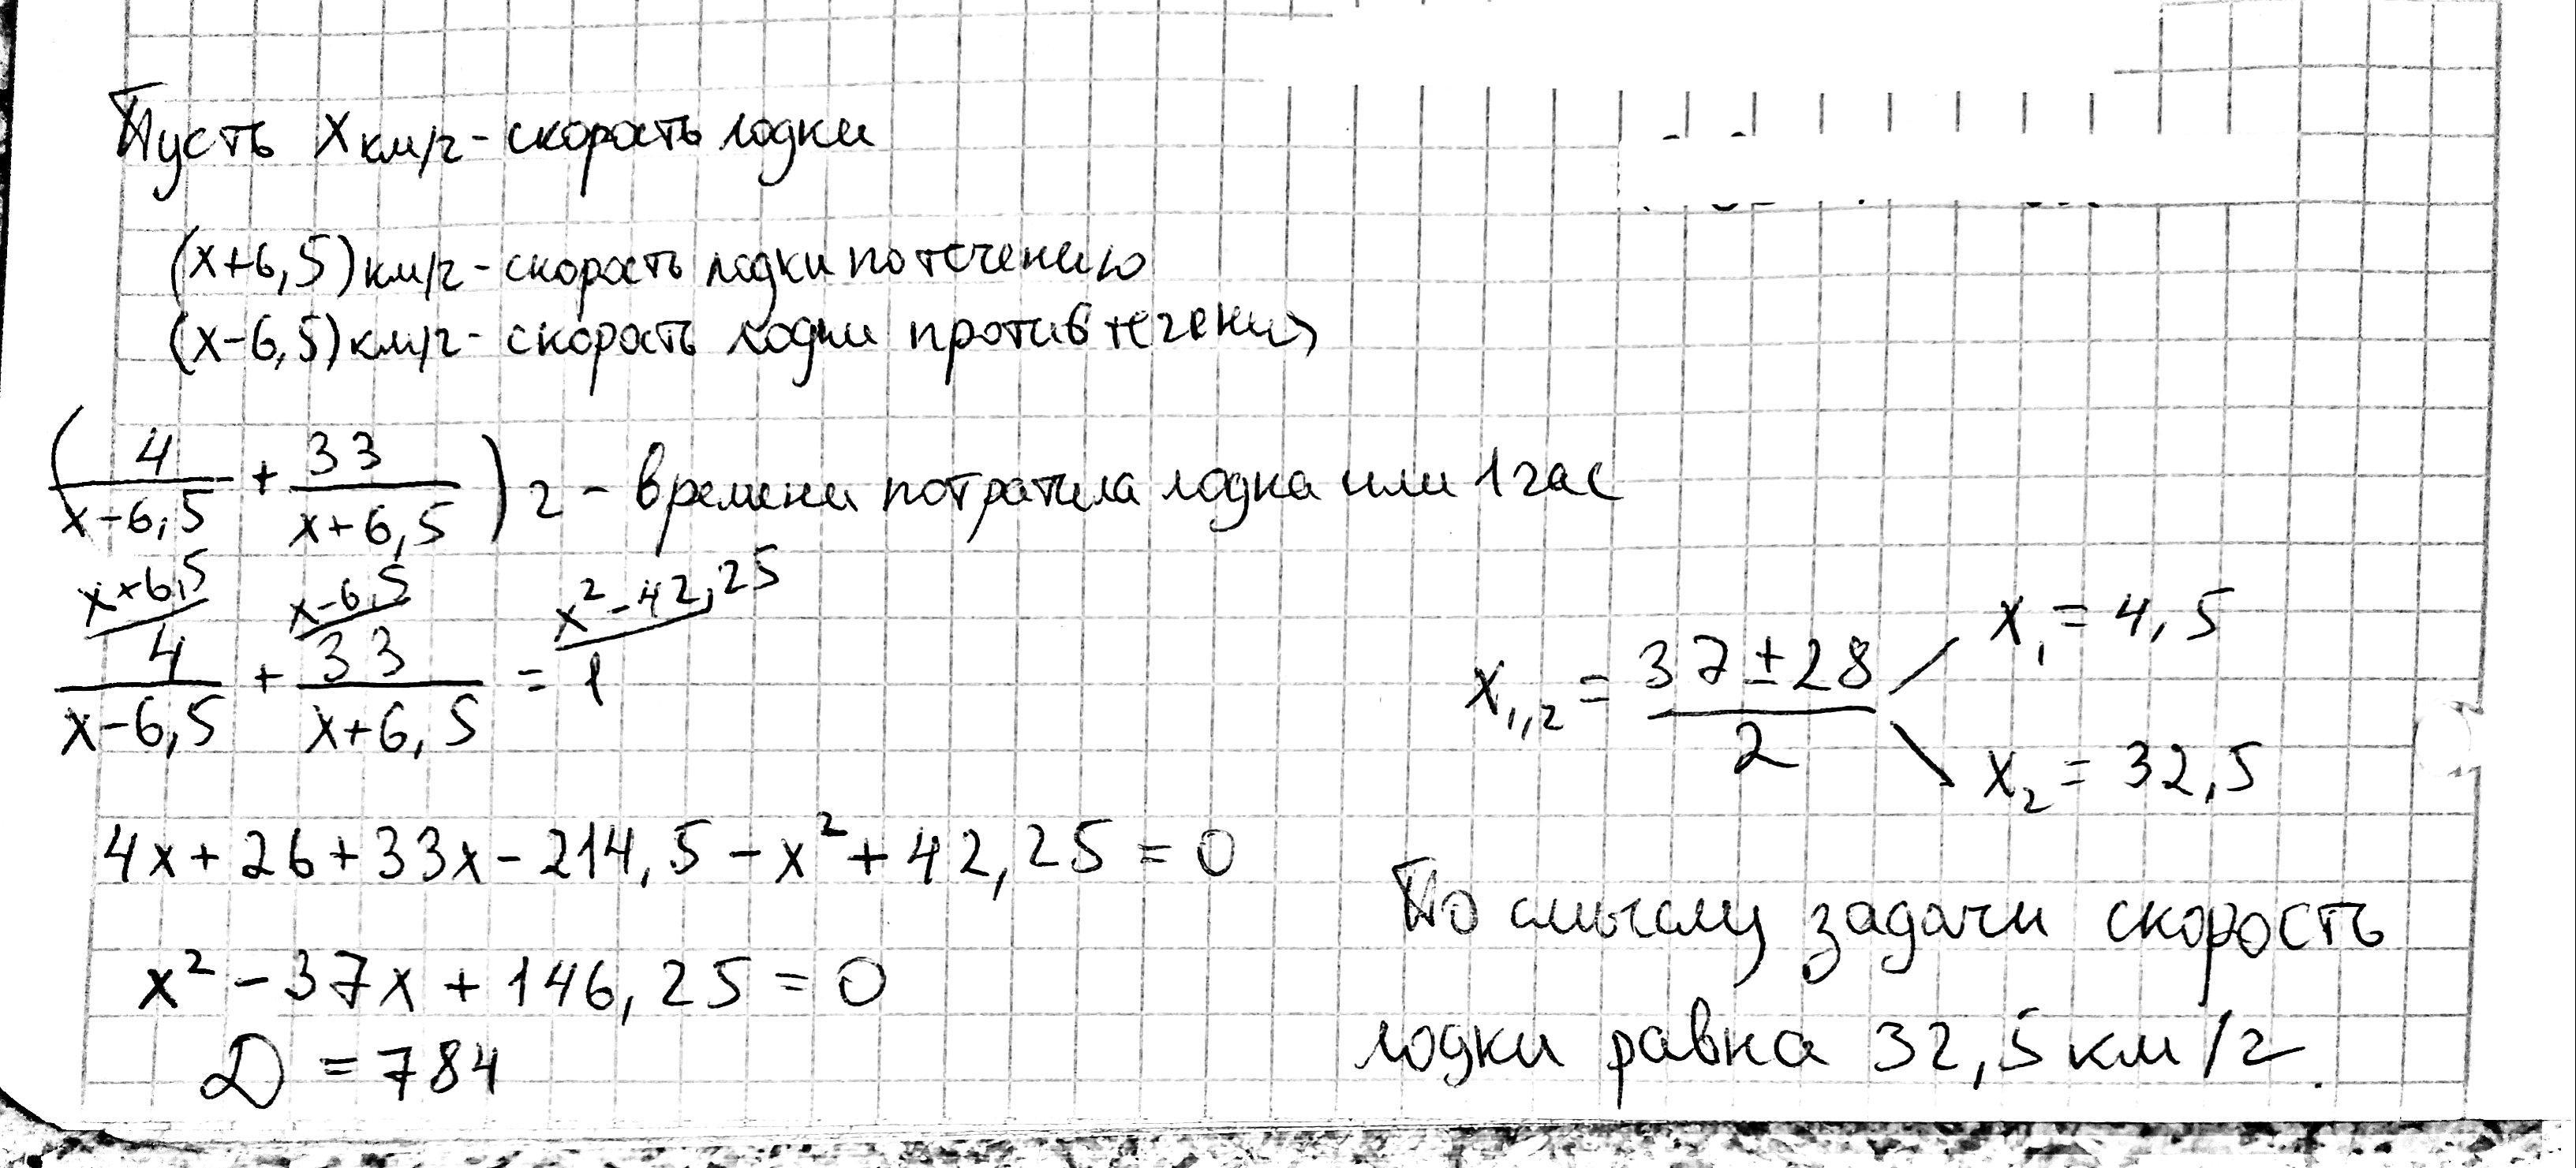 Пусть x км/ч - скорость лодки
(x+6,5) км/ч - скорость лодки по течению
(x-6,5) км/ч - скорость лодки против течения
(4/(x-6,5) + 33/(x+6,5)) ч - времени потратила лодка или 1 час
x+6,5 x-6,5 x²-42,25
4/(x-6,5) + 33/(x+6,5) = 1
4x+26+33x-214,5-x²+42,25=0
x²-37x+146,25=0
D=784
x₁,₂ = (37±28)/2
x₁ = 4,5
x₂ = 32,5
По смыслу задачи скорость
лодки равна 32,5 км/ч.